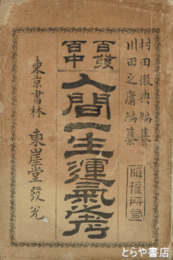 村田徴典編纂
川田之庸編纂
版權所有
百發百中
人間一生運氣考
東京書林 東崖堂發兌
とらや書店